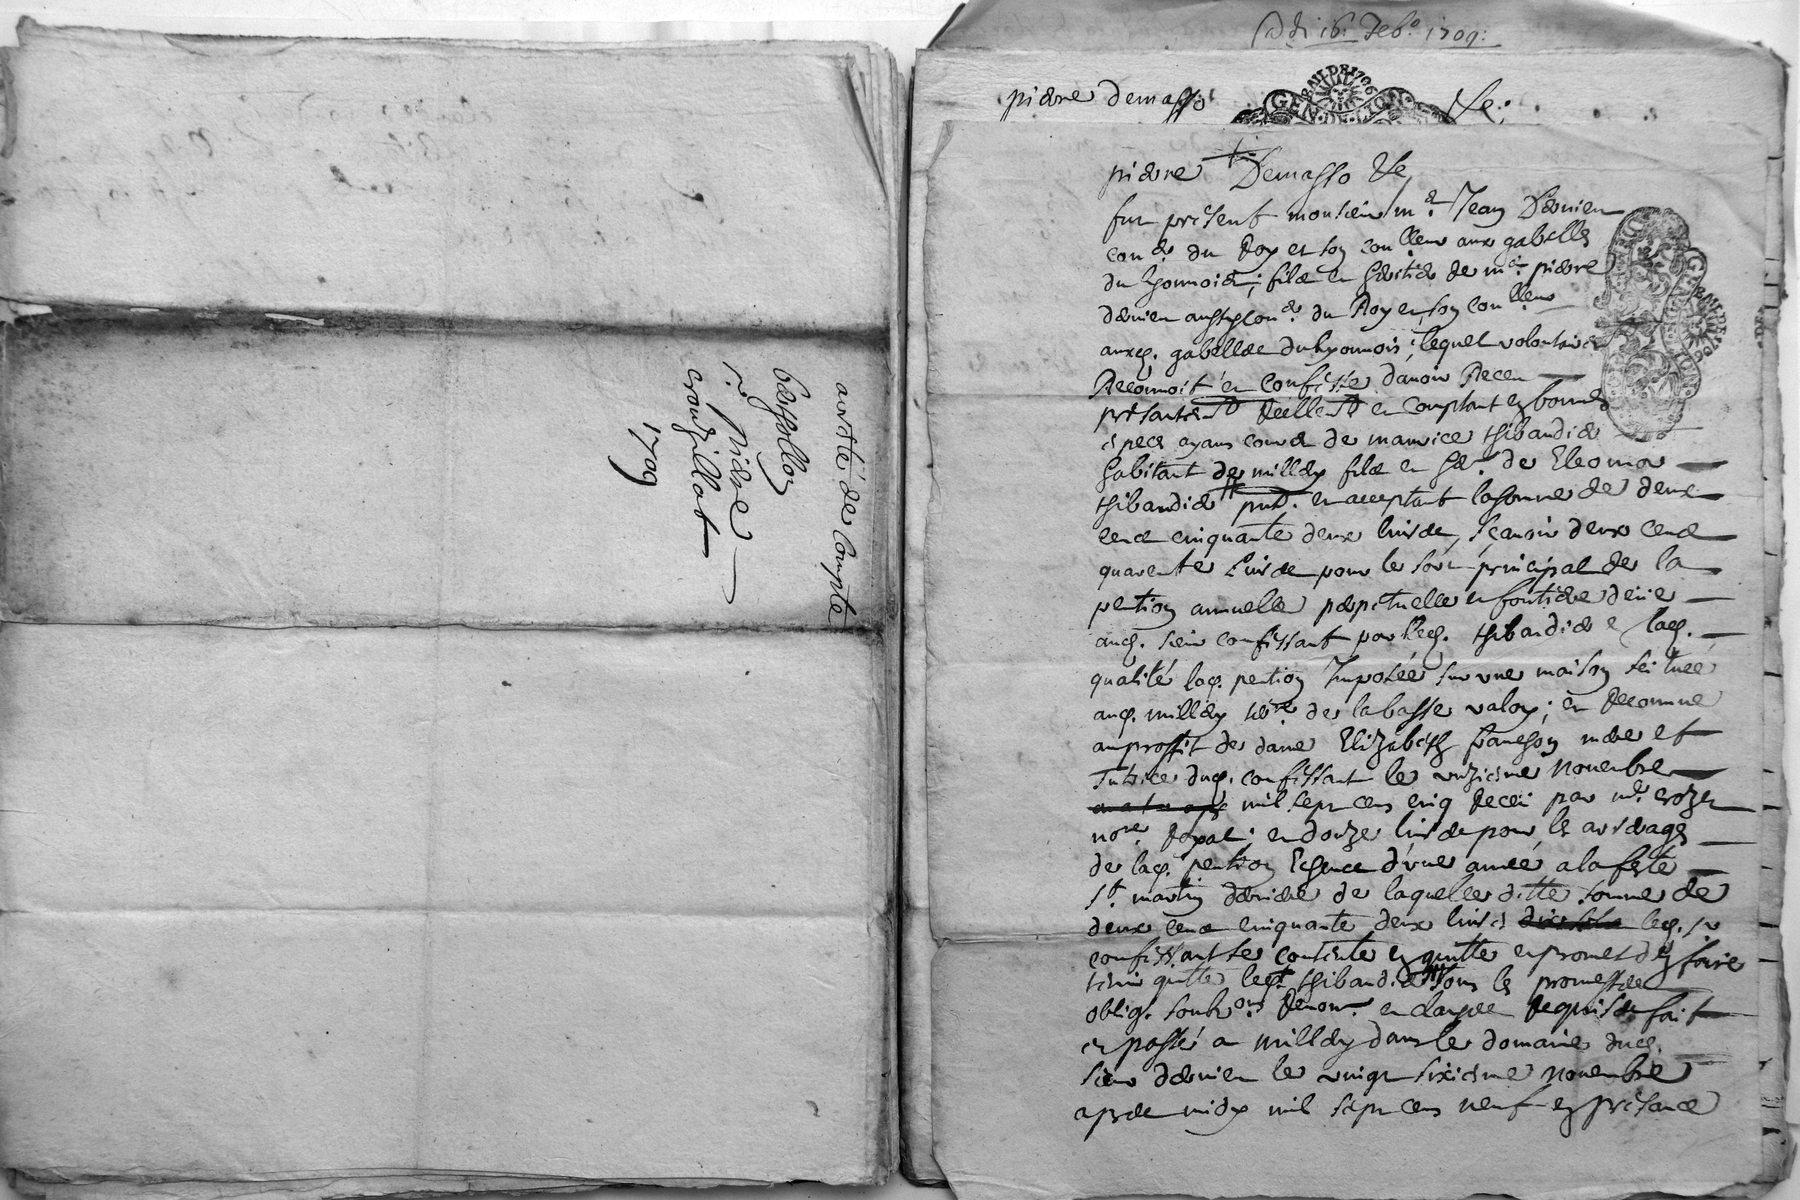 arresté de Compte
Besssollon
Pierre
crouzillat
1709
Adi 16 Feb.º 1709:
pierre demasso &c;
GEN. DE LION BAIL DE 1706
pierre Demasso &c
fut présent monsieur m.e Jean Dervieu
con.er du Roy et son con lleur aux gabelles
du lyonnois, filz et héritier de m.e pierre
dervieu aussy con.er du Roy et son con lleur
auxq. gabelles du lyonnois; lequel volontaire
Reconnoit et confesse d'avoir Receu
présantem.t reellem.t et comptant en bonnes
espèces ayans cours de maurice thibaudier
habitant de millery filz et hér. de Eleonor
thibaudier pnt. et acceptant la somme de deux
cens cinquante deux livres, sçavoir deux cens
quarente livres pour le sort principal de la
pention annuelle perpetuelle et fontiere deüe
aud. sieur confessant par led. thibaudier e lad.
qualité lad. pention Imposée sur une maison scituée
aud. millery de la basse valoy; et reconnue
au proffit de dame Elizabeth françon mere et
Tutrice dud. confessant le unzieme novembre
mil sept cens cinq Receu par m.e crozet
no.re Royal; et douze livres pour les arrerages
de lad. pention Echeue d'une année a la feste
S.t martin derniere de laquelle ditte somme de
deux cens cinquante deux livres led. s.r
confessant se contente en quitte et promet d'en faire
tenir quitte led. thibaudier sous les promesses
oblig. soub.ons Renon. et clauses Requises fait
et passé a millery dans le domaine dud.
sieur dervieu le vingt sixieme novembre
apres midy mil sept cens neuf en présance